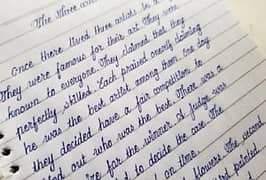 The three
Once there lived three artists in a
They were famous for their art. They were
known to everyone. They claimed that they
perfectly skilled. Each praised openly claiming
he was the best artist among them. One day
they decided have a fair competition to
out who was the best. There was a
for the winner. A judge was
to decide the case. The
on time.
flowers. The second
painted